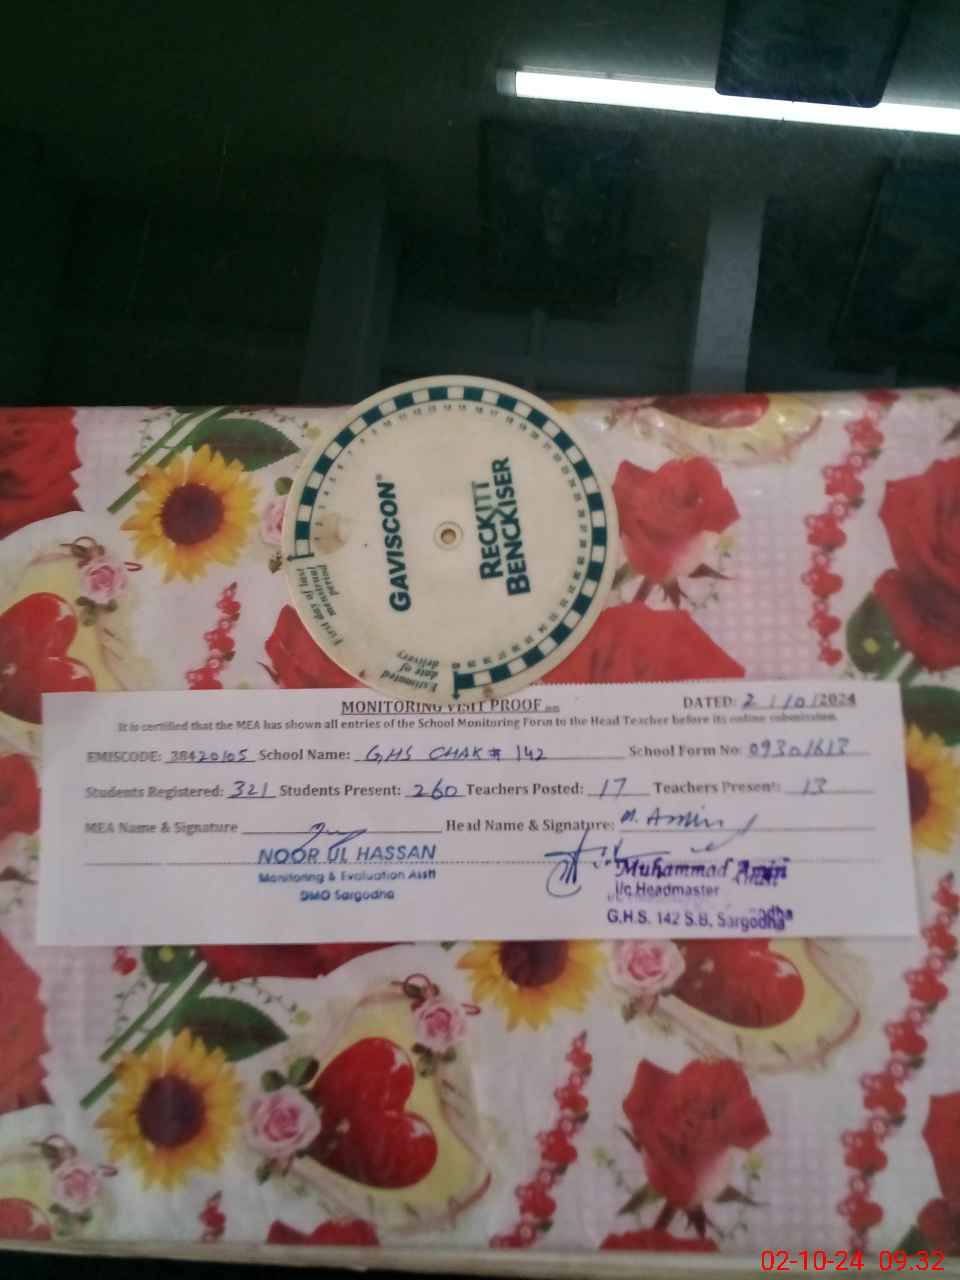 GAVISCON®
RECKITT
BENCKISER
First day of last
menstrual
period
Estimated
date of
delivery
MONITORING VISIT PROOF DATED: 2/10/2024
It is certified that the MEA has shown all entries of the School Monitoring Form to the Head Teacher before its online submission.
EMISCODE: 38420105 School Name: GHS CHAK # 142 School Form No: 09301613
Students Registered: 321 Students Present: 260 Teachers Posted: 17 Teachers Present: 13
MEA Name & Signature Head Name & Signature: M. Amin
NOOR UL HASSAN
Monitoring & Evaluation Asstt
DMO Sargodha
Muhammad Amin
I/c Headmaster
G.H.S. 142 S.B, Sargodha
02-10-24 09.32